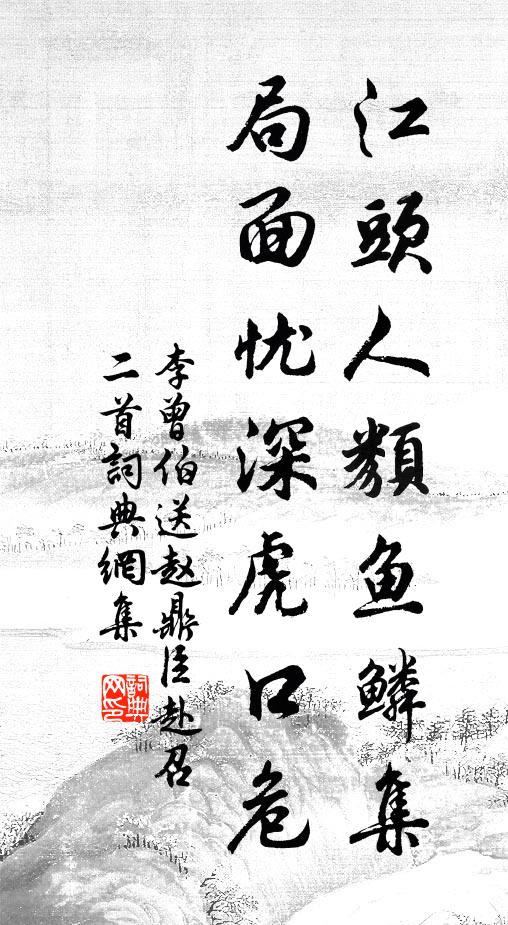 江頭人類鱼鳞集
局面忧深虎口危
李曾伯送赵鼎臣赴召
二首詞典網集
詞典
网印